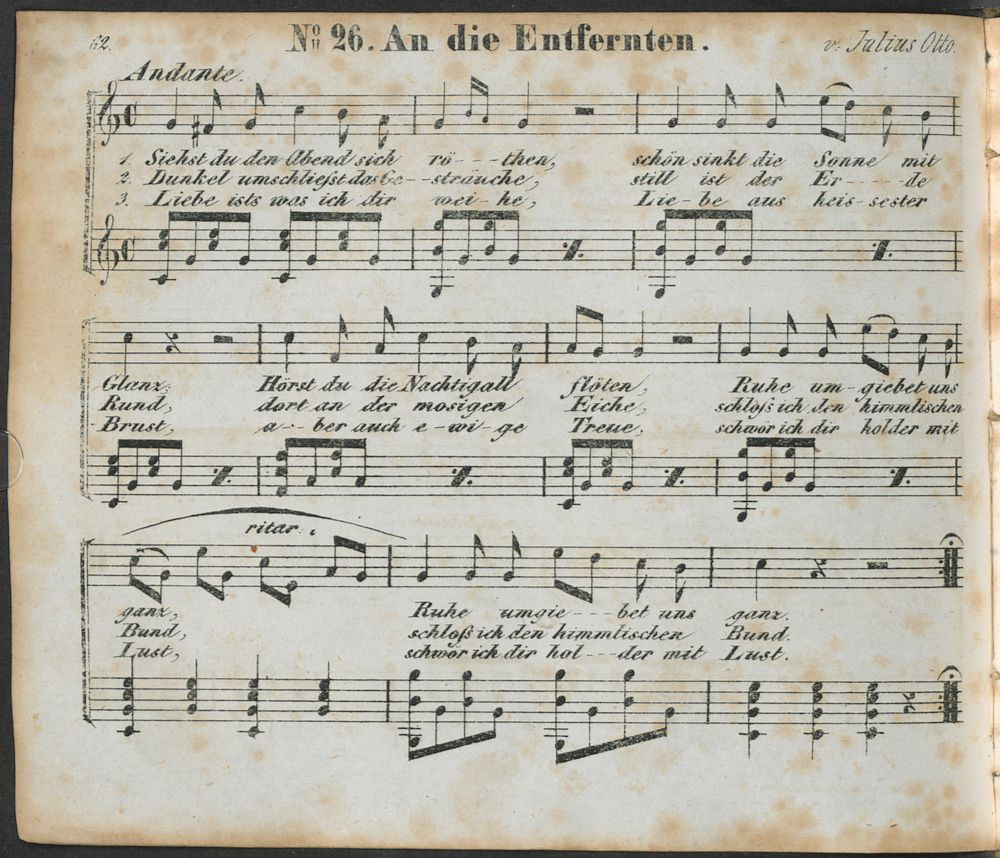 62.
No. 26. An die Entfernten.
v: Julius Otto.
Andante.
1. Siehst du den Abend sich rö - - - then, schön sinkt die Sonne mit
2. Dunkel umschließt das Ge - - sträuche, still ist der Er - - - - de
3. Liebe ists was ich dir wei - he, Lie - be aus heis - sester
Glanz. Hörst du die Nachtigall flöten, Ruhe um - giebet uns
Rund, dort an der mosigen Eiche, schloß ich den himmlischen
Brust, a - - ber auch e - wi - ge Treue, schwör ich dir holder mit
ritar:
ganz, Ruhe umgie - - - bet uns ganz.
Bund, schloß ich den himmlischen Bund.
Lust, schwör ich dir hol - - - der mit Lust.